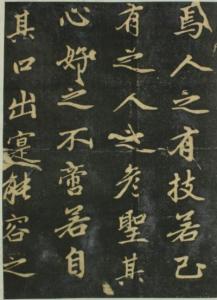 焉人之有技若己
有之人之彦聖其
心好之不啻若自
其口出寔能容之